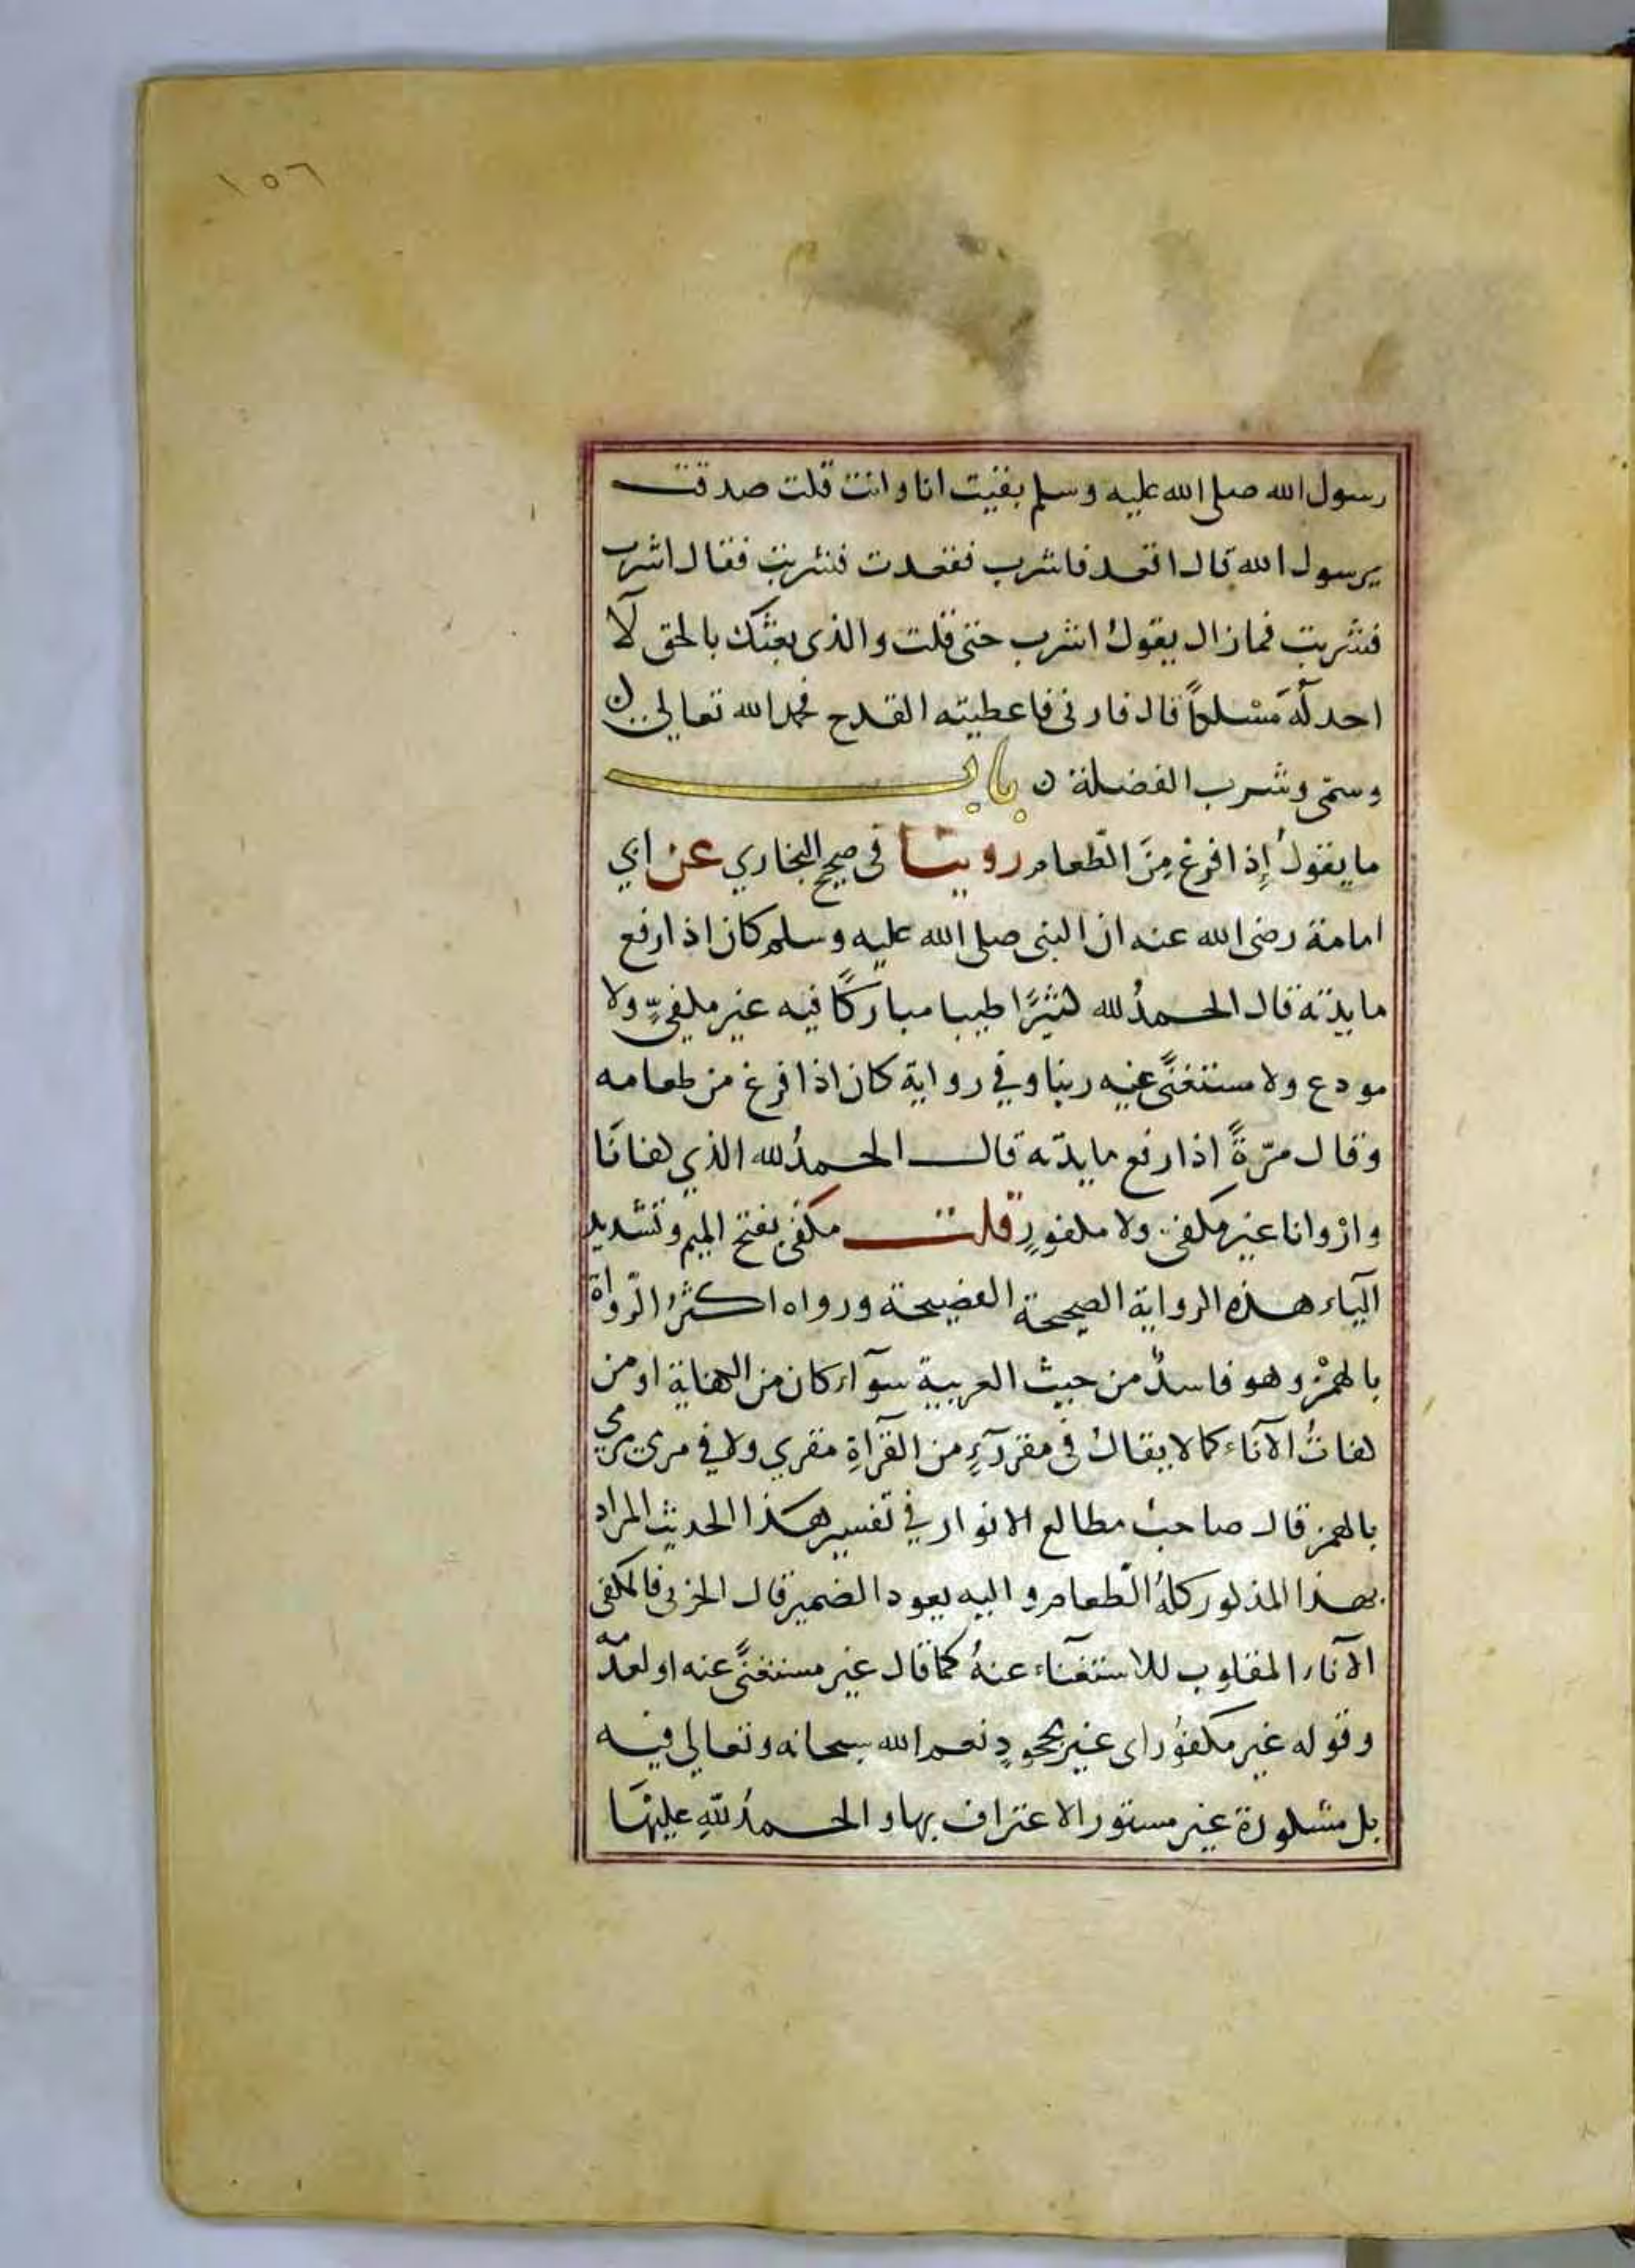 ١٥٦
رسول الله صلى الله عليه وسلم بقيت انا وانت قلت صدقت
يرسول الله قال اقعد فاشرب فقعدت فشربت فقال اشرب
فشربت فمازال يقولُ اشرب حتى قلت والذى بعثك بالحق لآ
احد لَهُ مَسْلكاً قال فارنى فاعطيته القدح فحمد الله تعالى
وسمّى وشرب الفضلة ن بابـــ
ما يقولُ إِذا فرغ مِنَ الطّعام روينا فى صحيح البخاري عن ابي
امامة رضى الله عنه ان النبى صلى الله عليه وسلم كان اذا رفع
مايدته قال الحمدُ لله كثيرًا طيبا مباركًا فيه غير مكفيٍّ ولا
مودع ولا مستغنًى عنه ربنا وفي رواية كان اذا فرغ من طعامه
وقال مرّةً اذا رفع مايدته قال الحمدُ لله الذي كفانَا
وارْوانا غير مكفى ولا مكفورٍ قلت مكفى بفتح الميم وتشديد
اليآء هذه الرواية الصحيحة الفصيحة ورواه اكثرُ الرّواة
بالهمْز وهو فاسدٌ من حيث العربية سوآء كان من الكفاية او من
كفاتُ الآناء كما لا يقالُ فى مقروءٍ من القرآةِ مقري ولا في مرمي مرمي
بالهمز قال صاحبُ مطالع الانوار في تفسير هذا الحديث المراد
بهذا المذكور كلهُ الطّعام و اليه يعود الضمير قال الحربى فالمكفى
الآناء المقلوب للاستغنآء عنهُ كما قال غير مستغنًى عنه او لعدمه
وقوله غير مكفوُر اى غير مجحودٍ نعم الله سبحانه وتعالى فيه
بل مشكورة غير مستور الاعتراف بها و الحمدُ للهِ عليهَا